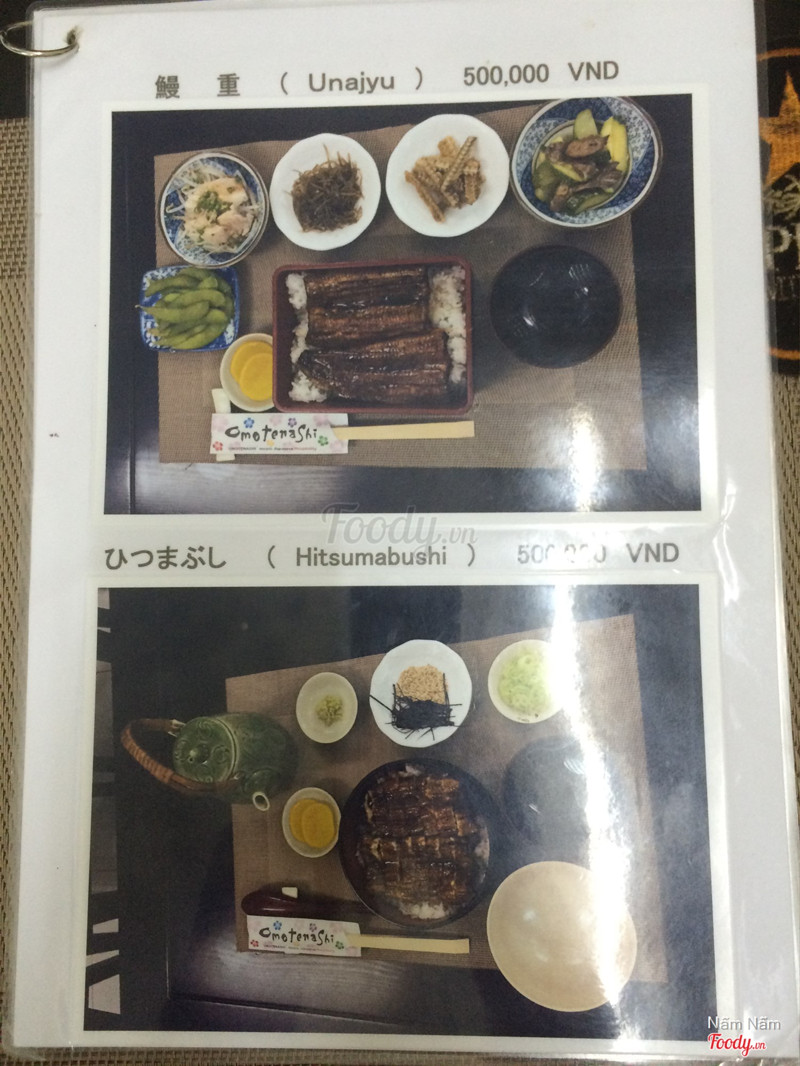 鰻 重 ( Unajyu ) 500,000 VND
omotenashi
Foody.vn
ひつまぶし ( Hitsumabushi ) 500,000 VND
omotenashi
Nấm Nấm
Foody.vn